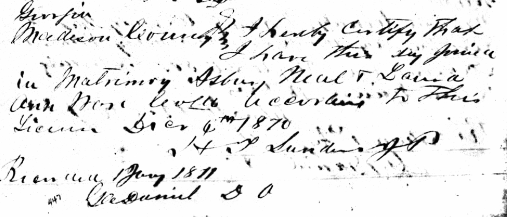 Georgia
Madison County } I hereby certify that
I have this day joined
in Matrimony Asbury Neal & Louisa
Ann
According to This
License Decr 6th 1870
J P Sanders J P
Recorded 1 Jany 1871
G McDaniel D O